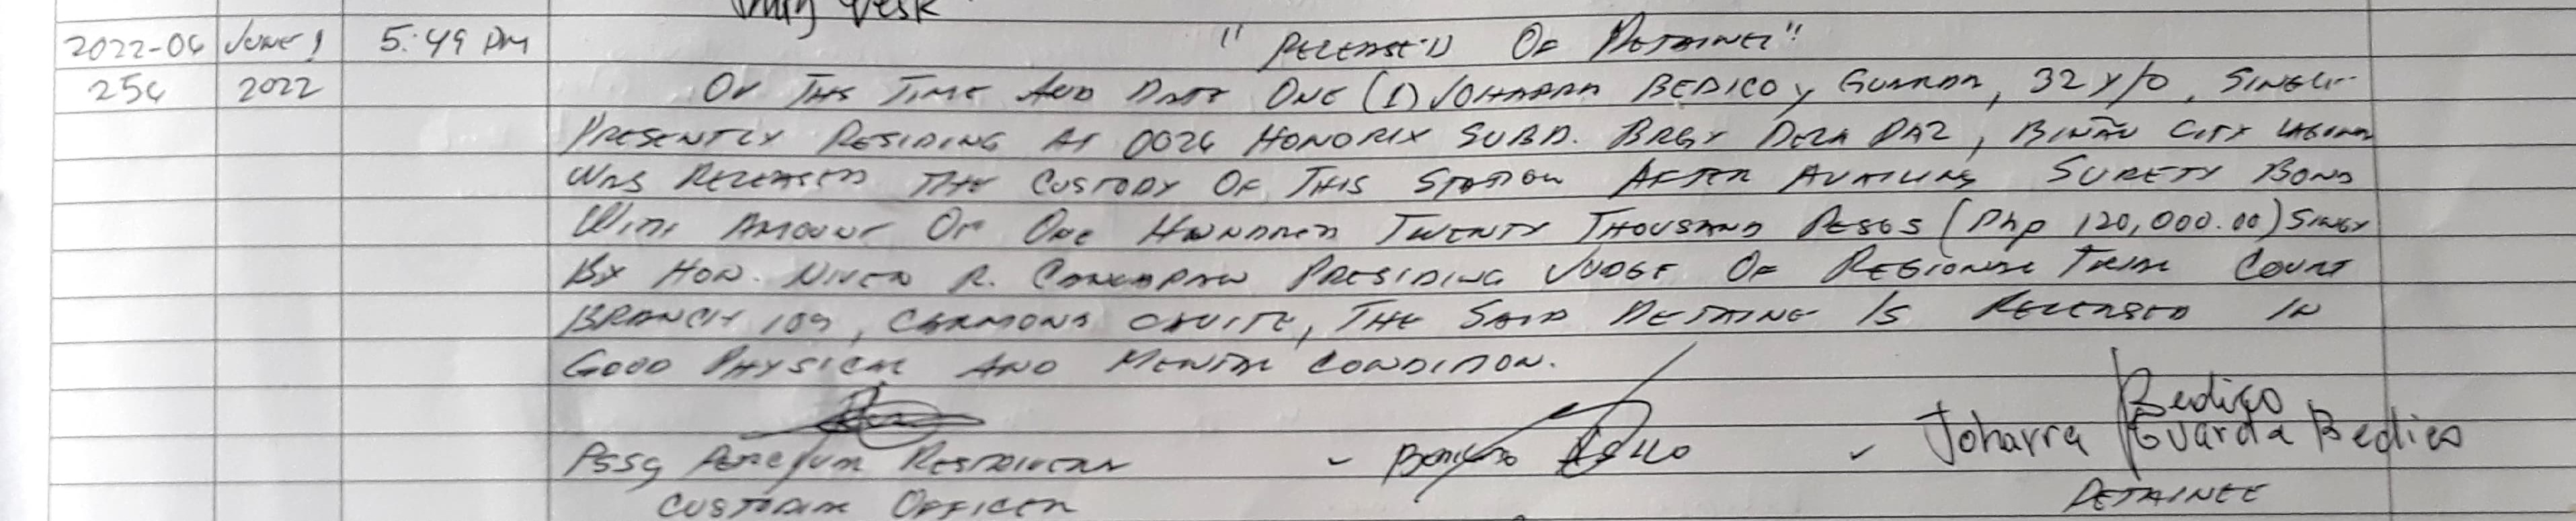 Duty Desk
2022-06 June 1 5:49 PM "RELEASE'D OF DETAINEE"
254 2022 ON THE TIME AND DATE ONE (1) JOHARRA BEDICO y GUARDA, 32 Y/O, SINGLE
PRESENTLY RESIDING AT 0026 HONORIX SUBD. BRGY DELA PAZ, BIÑAN CITY LAGUNA
WAS RELEASED THE CUSTODY OF THIS STATION AFTER AVAILING SURETY BOND
WITH AMOUNT OF ONE HUNDRED TWENTY THOUSAND PESOS (Php 120,000.00)
BY HON. R. PRESIDING JUDGE OF REGIONAL TRIAL COURT
BRANCH 109, CARMONA CAVITE, THE SAID DETAINE IS RELEASED IN
GOOD PHYSICAL AND MENTAL CONDITION.
Bedico
PSSG - - Joharra Guarda Bedico
CUSTODIAL OFFICER DETAINEE